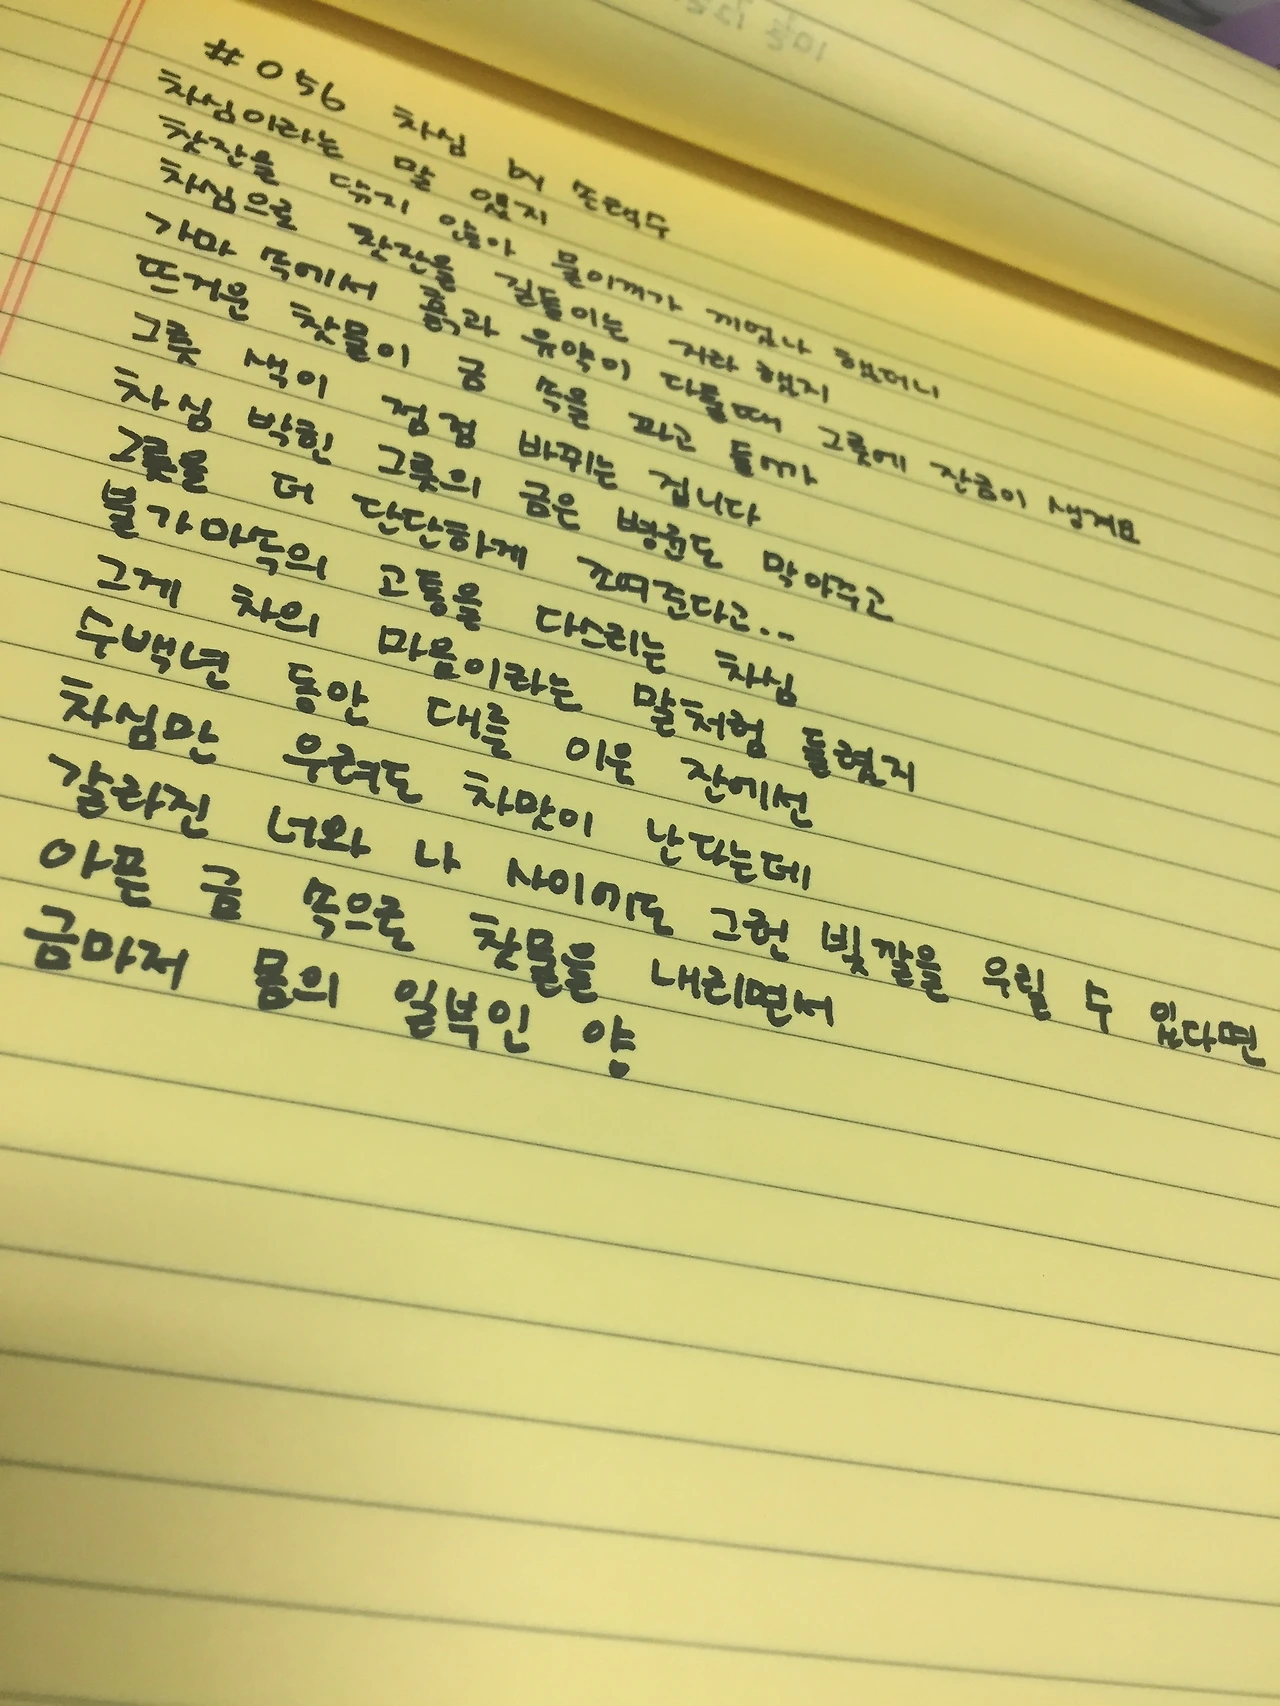 #056 차심 by 손택수
차심이라는 말 있지
찻잔을 닦지 않아 물이끼가 끼었나 했더니
차심으로 찻잔을 길들이는 거라 했지
가마 속에서 흙과 유약이 다툴때 그릇에 잔금이 생겨요
뜨거운 찻물이 금 속을 파고 들어가
그릇 색이 점점 바뀌는 겁니다
차심 박힌 그릇의 금은 병균도 막아주고
그릇을 더 단단하게 조여준다고...
불가마속의 고통을 다스리는 차심
그게 차의 마음이라는 말처럼 들렸지
수백년 동안 대를 이은 잔에선
차심만 우려도 차맛이 난다는데
갈라진 너와 나 사이에도 그런 빛깔을 우릴 수 있다면
아픈 금 속으로 찻물을 내리면서
금마저 몸의 일부인 양